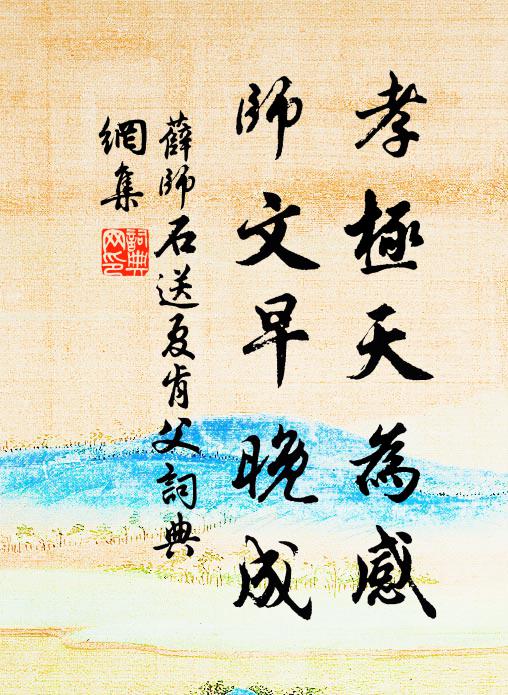 孝極天為感
師文早晚成
薛師石送夏肯父詞典
網集
詞典
网印